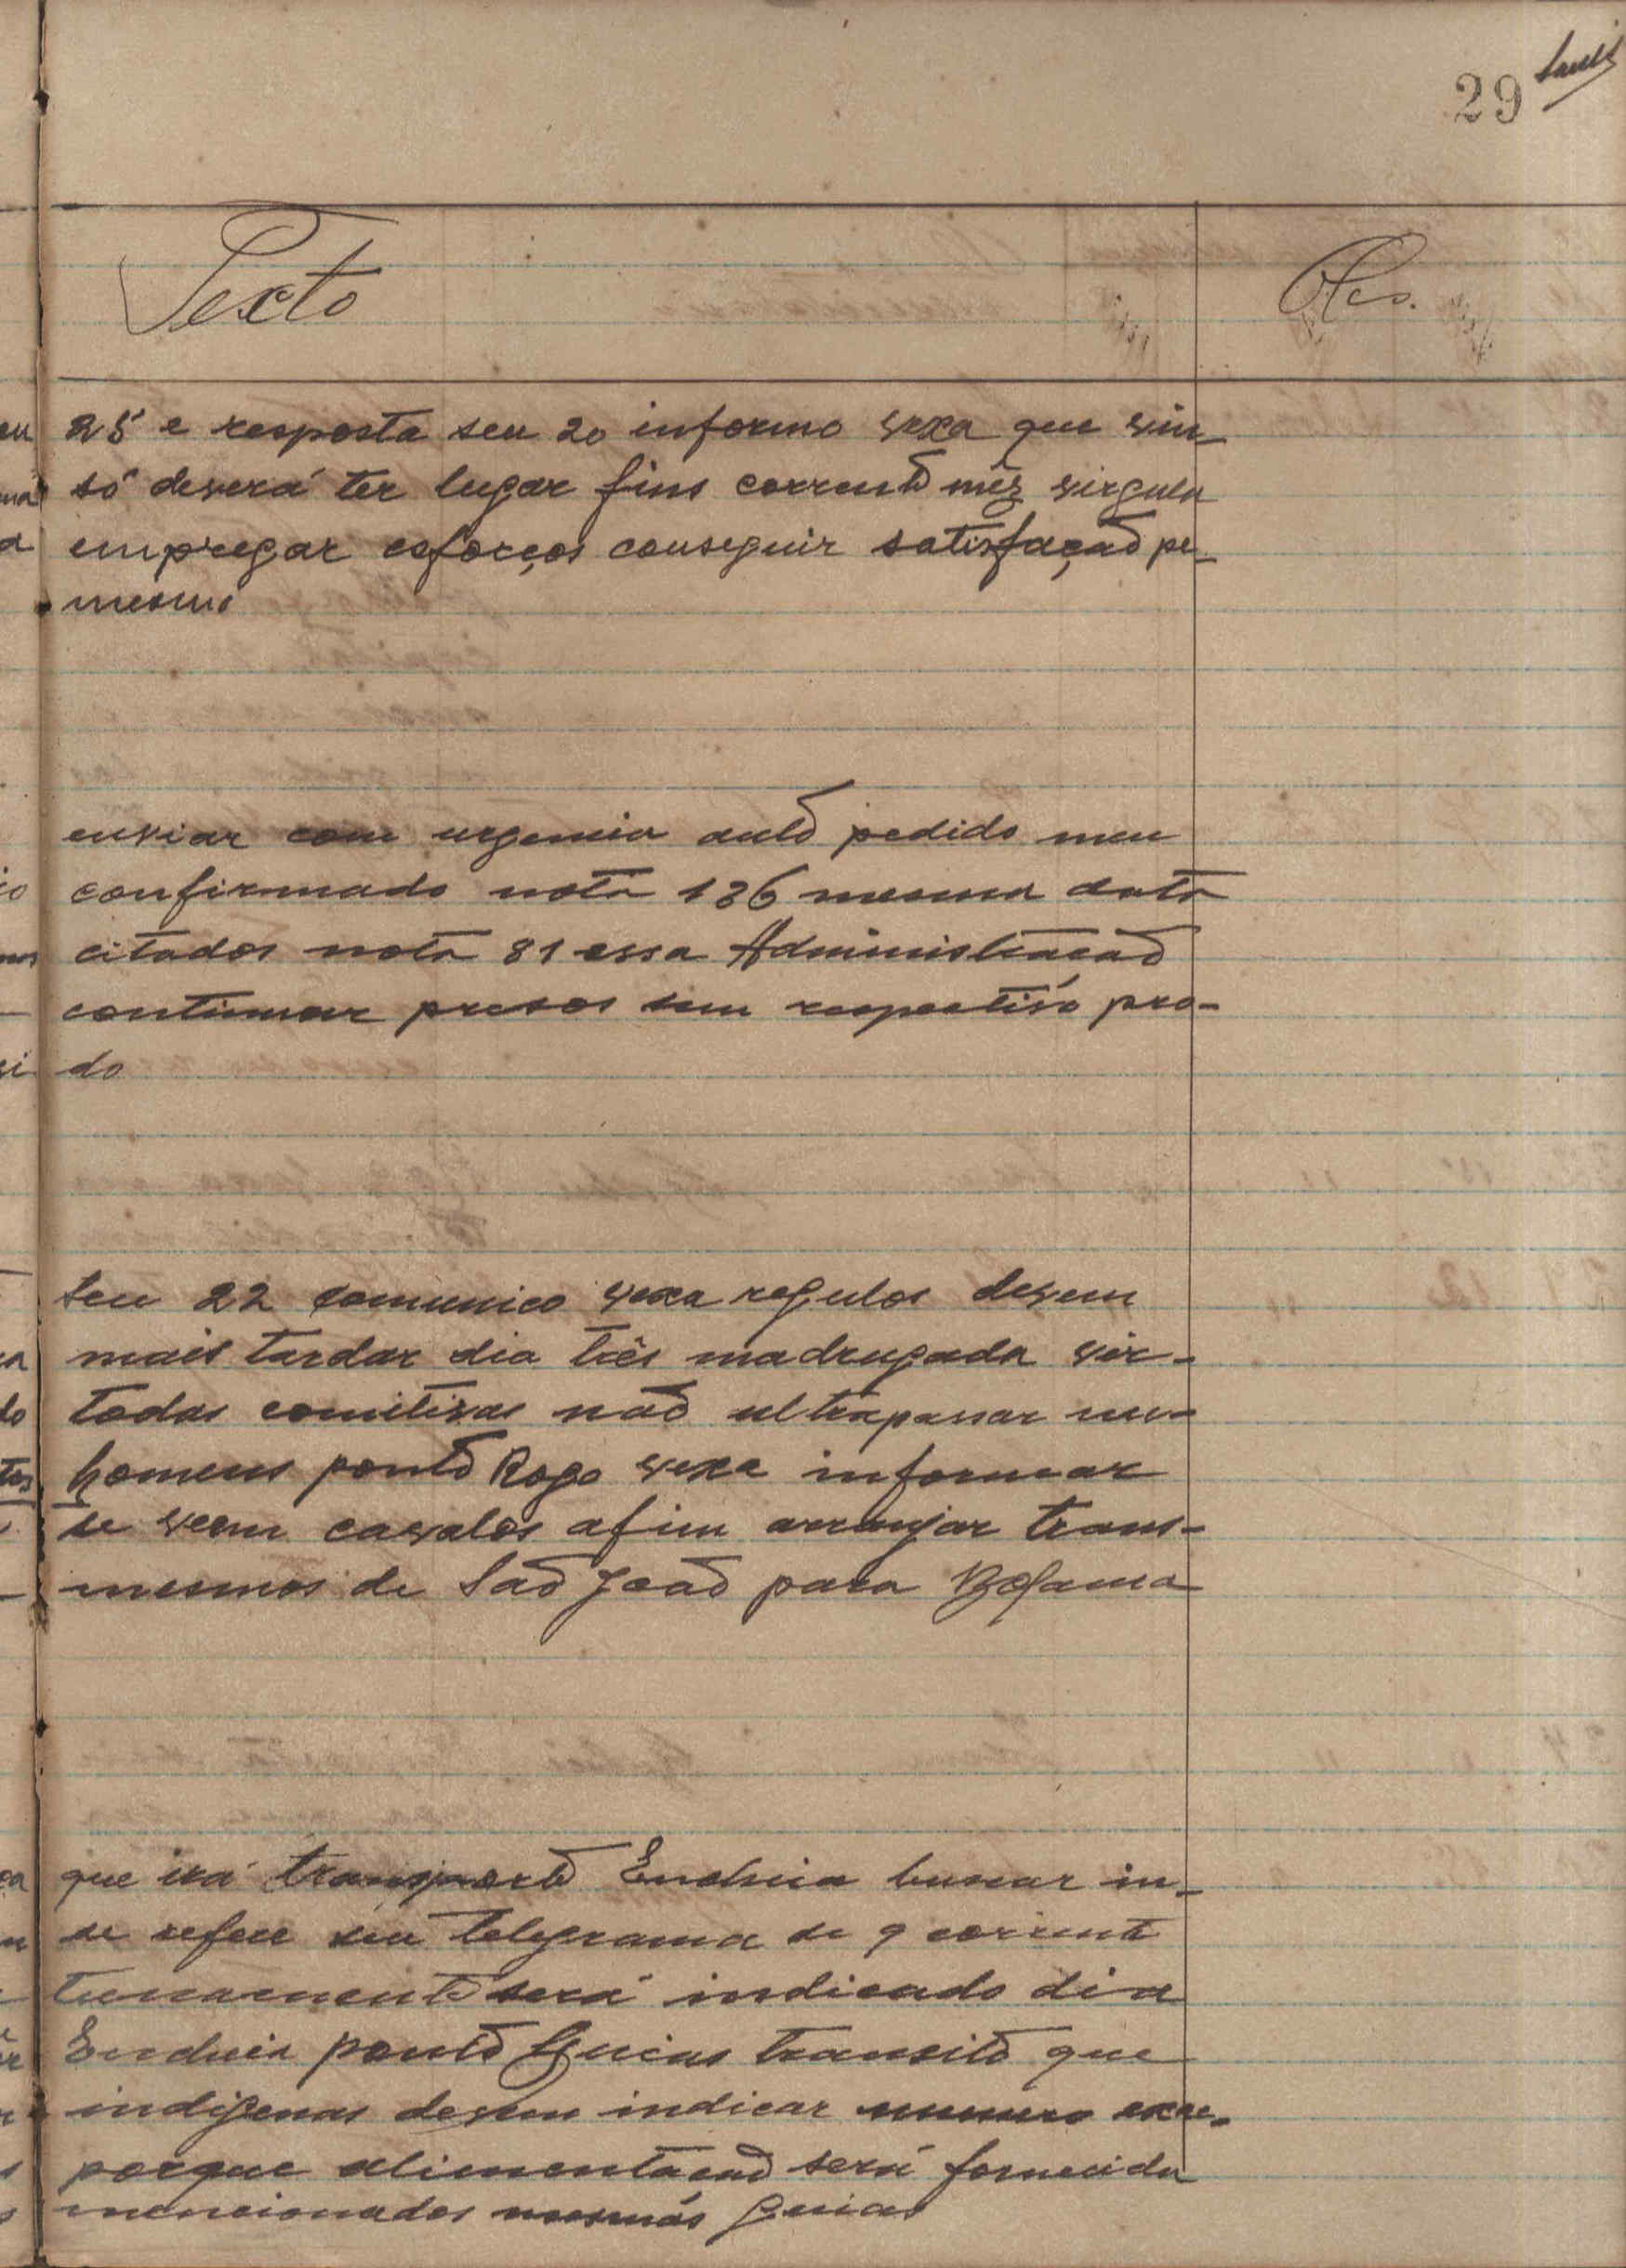 29
Texto
Obs.
eu 25 e resposta seu 20 informo vexa que vin-
só deverá ter lugar fins corrente mêz virgula
a empregar esforços conseguir satisfação pe-
mesmo
enviar com urgencia auto pedido meu
io confirmado nota 136 mesma data
citados nota 81 essa Administração
continuar presos sem respectivo pro-
do
seu 22 comunico vexa regulos devem
mais tardar dia três madrugada vir-
do todas comitivas não ultrapassar nu-
tes homens ponto Rogo vexa informar
se veem cavalos afim arranjar trans-
mesmos de São João para Bolama
que irá transporte Encheia buscar in-
se refere seu telegrama de 9 corrente
tunamente será indicado dia
ponto Guias transito que
indigenas devem indicar numero exa-
porque alimentação será fornecida
mencionados mesmas Guias